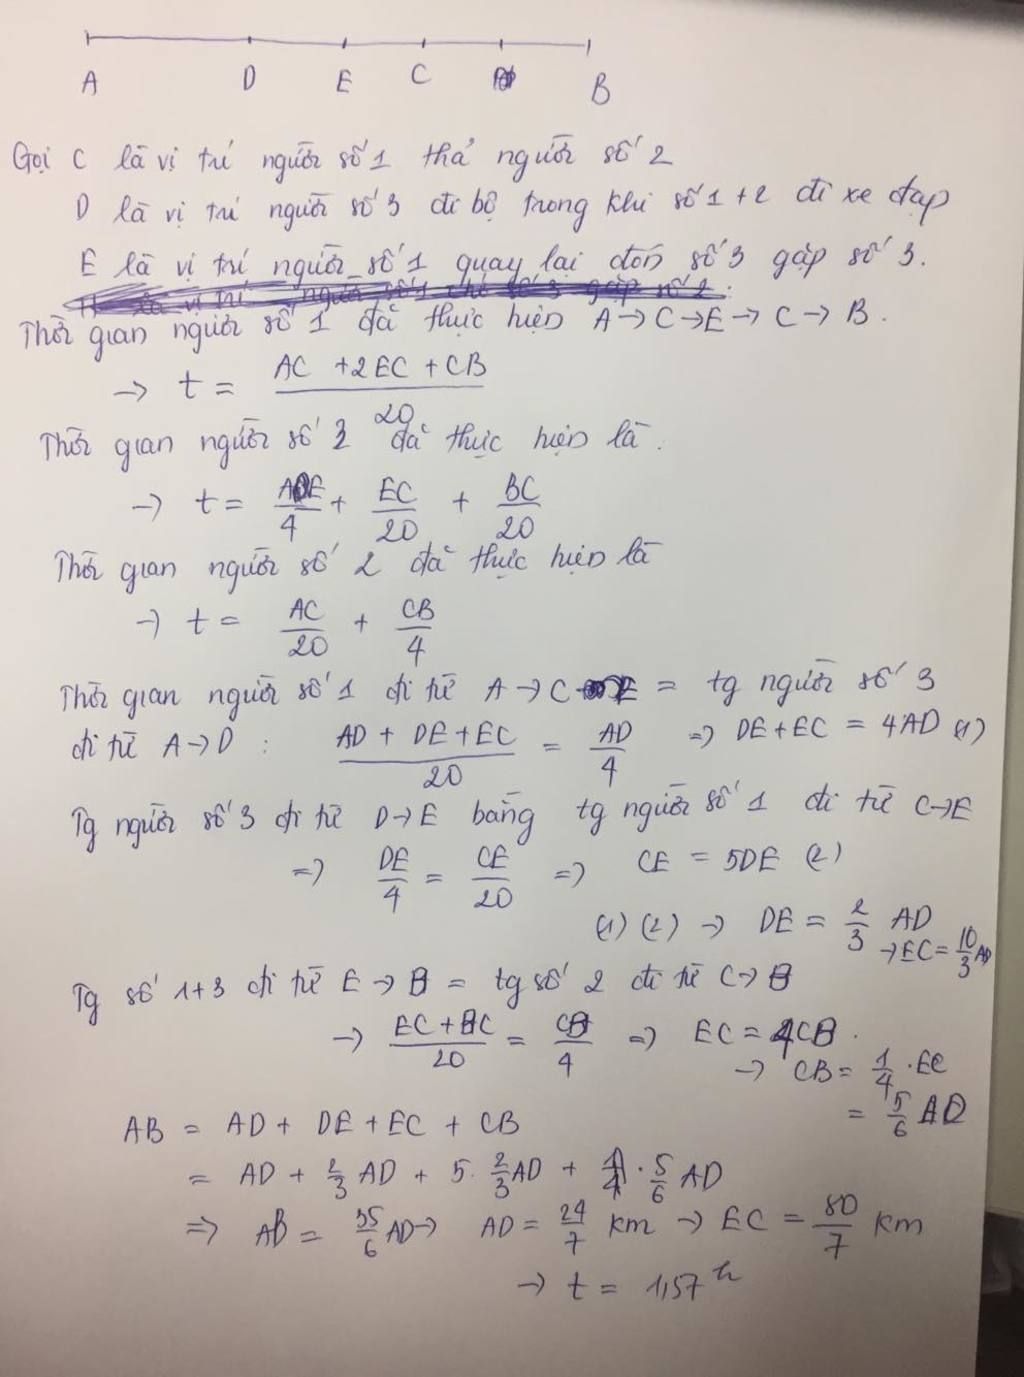 A D E C B
Gọi C là vị trí người số 1 thả người số 2
D là vị trí người số 3 đi bộ trong khi số 1 + 2 đi xe đạp
E là vị trí người số 1 quay lại đón số 3 gặp số 3.
Thời gian người số 1 đã thực hiện A → C → E → C → B.
→ t = (AC + 2EC + CB)/20
Thời gian người số 3 đã thực hiện là.
→ t = AE/4 + EC/20 + BC/20
Thời gian người số 2 đã thực hiện là
→ t = AC/20 + CB/4
Thời gian người số 1 đi từ A → C = tg người số 3
đi từ A → D : (AD + DE + EC)/20 = AD/4 => DE + EC = 4AD (1)
Tg người số 3 đi từ D → E bằng tg người số 1 đi từ C → E
=> DE/4 = CE/20 => CE = 5DE (2)
(1) (2) → DE = 2/3 AD
→ EC = 10/3 AD
Tg số 1+3 đi từ E → B = tg số 2 đi từ C → B
→ (EC + BC)/20 = CB/4 => EC = 4CB.
→ CB = 1/4 . EC
= 5/6 AD
AB = AD + DE + EC + CB
= AD + 2/3 AD + 5. 2/3 AD + . 5/6 AD
=> AB = 35/6 AD → AD = 24/7 km → EC = 80/7 km
→ t = 1,57 h